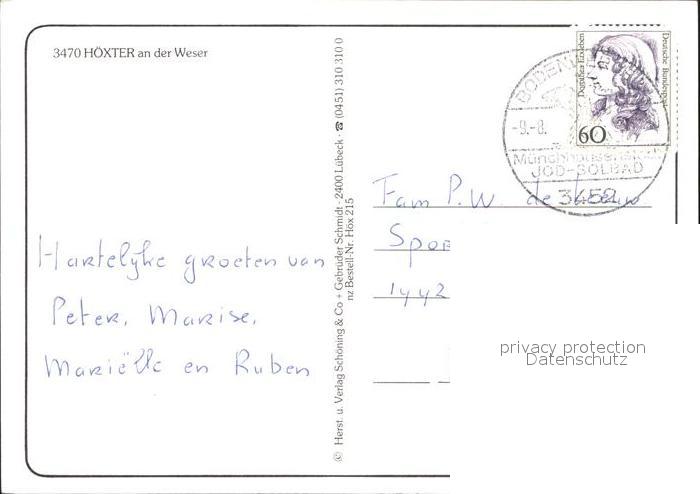 3470 HÖXTER an der Weser
Hartelijke groeten van
Peter, Marise,
Mariëlle en Ruben
© Herst. u. Verlag Schöning & Co + Gebrüder Schmidt · 2400 Lübeck · ☎ (0451) 310 310 0
nz Bestell-Nr. Höx 215
Dorothea Erxleben
Deutsche Bundespost
60
BODENW
-9.-8.
Münchhausen
JOD-SOLBAD
3452
Fam P.W. de Leeuw
Spo
1442
privacy protection
Datenschutz